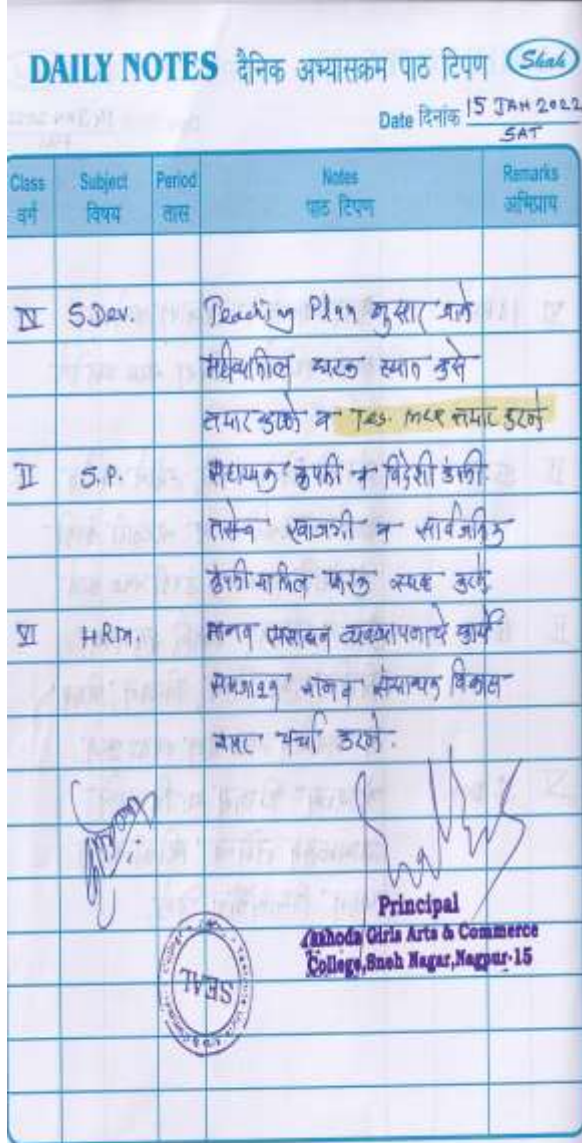 DAILY NOTES दैनिक अभ्यासक्रम पाठ टिपण Shah
Date दिनांक 15 JAN 2022
SAT
Class Subject Period Notes Remarks
वर्ग विषय तास पाठ टिपण अभिप्राय
IV S.Dev. Teaching Plan नुसार
फरक स्पष्ट करणे
तयार करणे व Tes. MCQ तयार करणे
II S.P. कंपनी व विदेशी कंपनी
तसेच खाजगी व सार्वजनिक
कंपनी मधील फरक स्पष्ट करणे
VI H.R.M. मानव संसाधन व्यवस्थापनाचे कार्य
समजावून मानव संसाधन विकास
चर्चा करणे.
Principal
Yashoda Girls Arts & Commerce
College, Sneh Nagar, Nagpur-15
SEAL